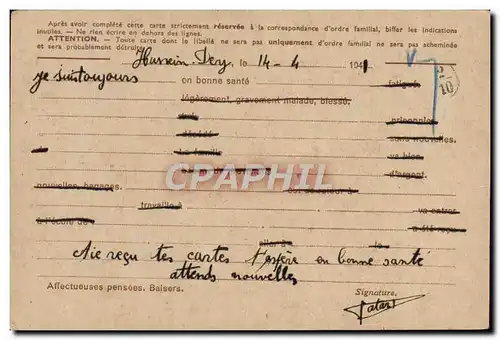 Après avoir complété cette carte strictement réservée à la correspondance d'ordre familial, biffer les indications
inutiles. — Ne rien écrire en dehors des lignes.
ATTENTION. — Toute carte dont le libellé ne sera pas uniquement d'ordre familial ne sera pas acheminée
et sera probablement détruite.
Hussein Dey, le 14-4 194
je suis toujours en bonne santé fatigué
légèrement, gravement malade, blessé.
tué prisonnier
décédé sans nouvelles.
La famille va bien
de d'argent.
nouvelles, bagages. est de retour à
travaille à va entrer
à l'école de a été reçu
aller à le
Aie reçu tes cartes t'espère en bonne santé
attends nouvelles
Affectueuses pensées. Baisers. Signature.
CPHAPHIL
10